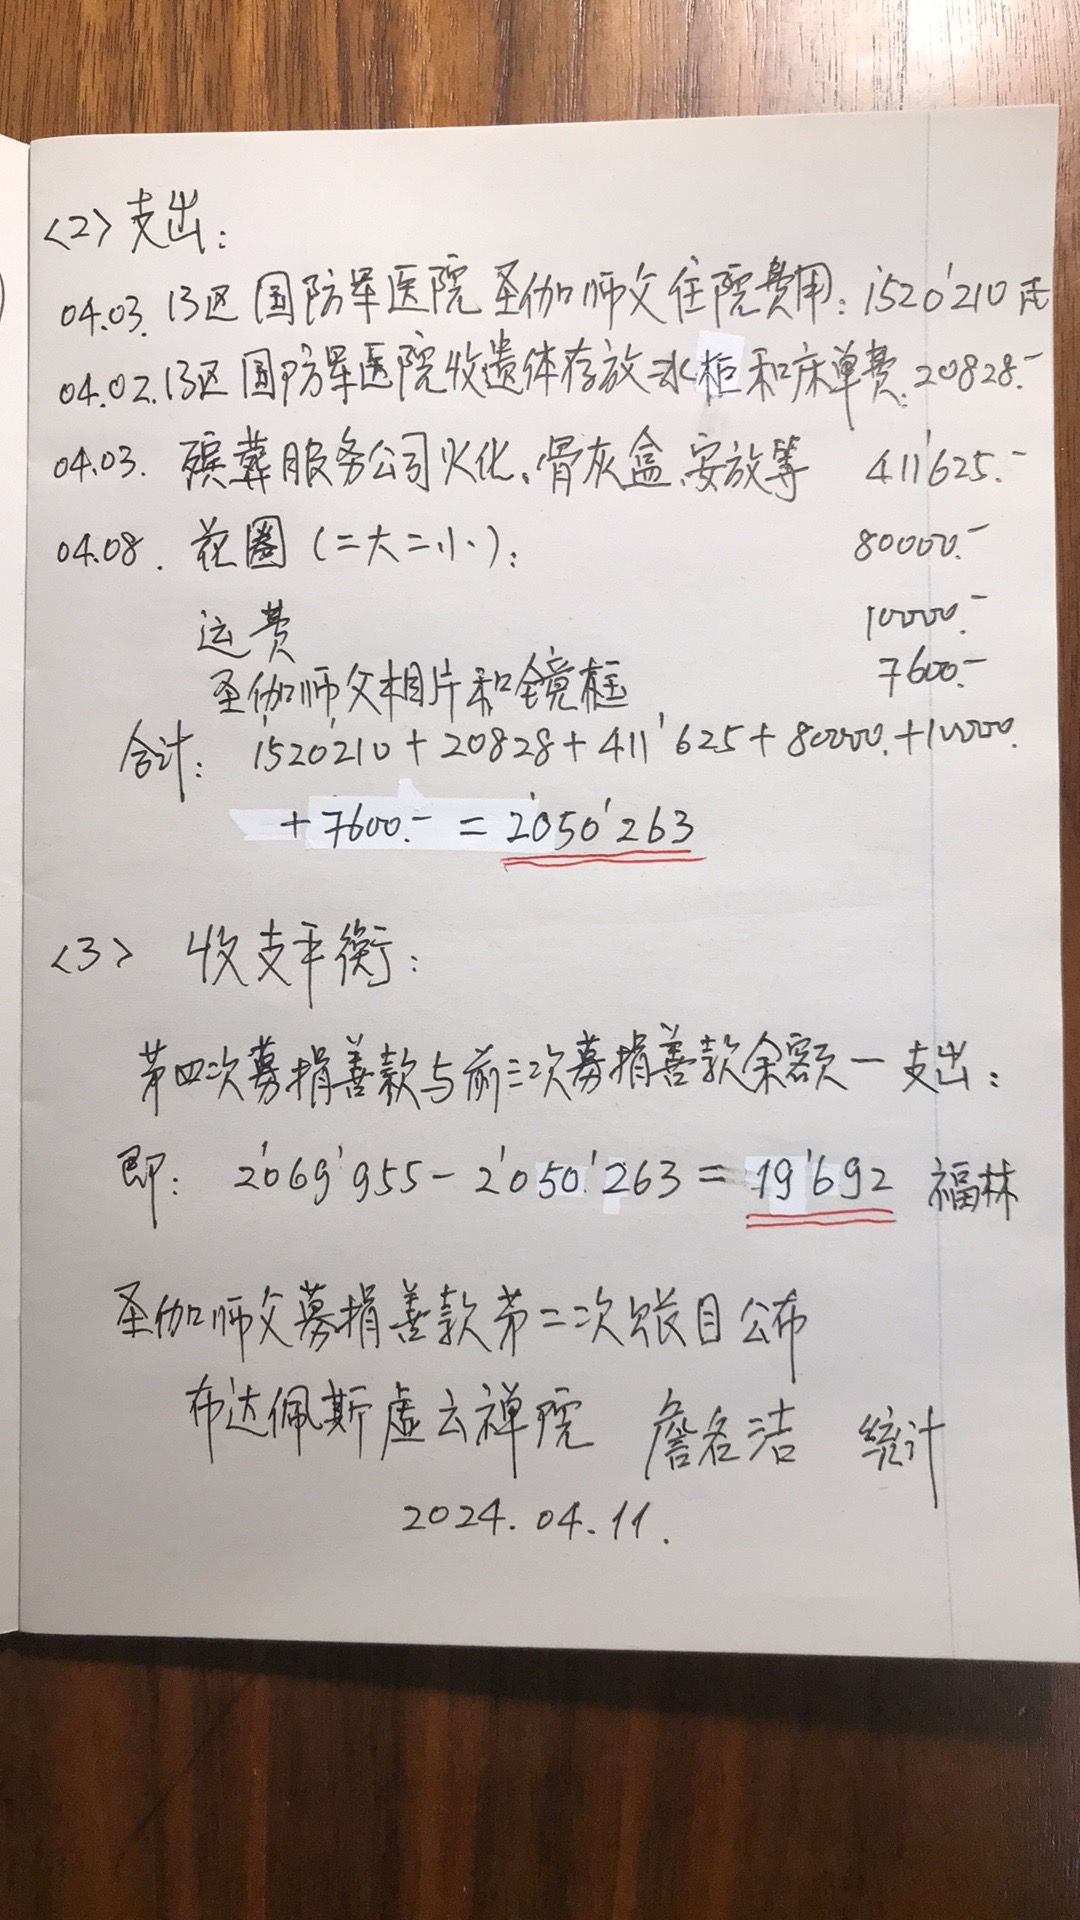 <2> 支出：
04.03. 13区国防军医院圣伽师父住院费用：1520'210
04.02. 13区国防军医院收遗体存放冰柜和床单费. 20828.-
04.03. 殡葬服务公司火化、骨灰盒、安放等 411'625.-
04.08. 花圈（二大二小）： 80000.-
运费 10000.-
圣伽师父相片和镜框 7600.-
合计： 1'520'210 + 20828 + 411'625 + 80000. + 10000.
+ 7600.- = 2'050'263
<3> 收支平衡：
第四次募捐善款与前三次募捐善款余额 — 支出：
即： 2'069'955 - 2'050'263 = 19'692 福林
圣伽师父募捐善款第二次账目公布
布达佩斯虚云禅院 詹名洁 统计
2024.04.11.